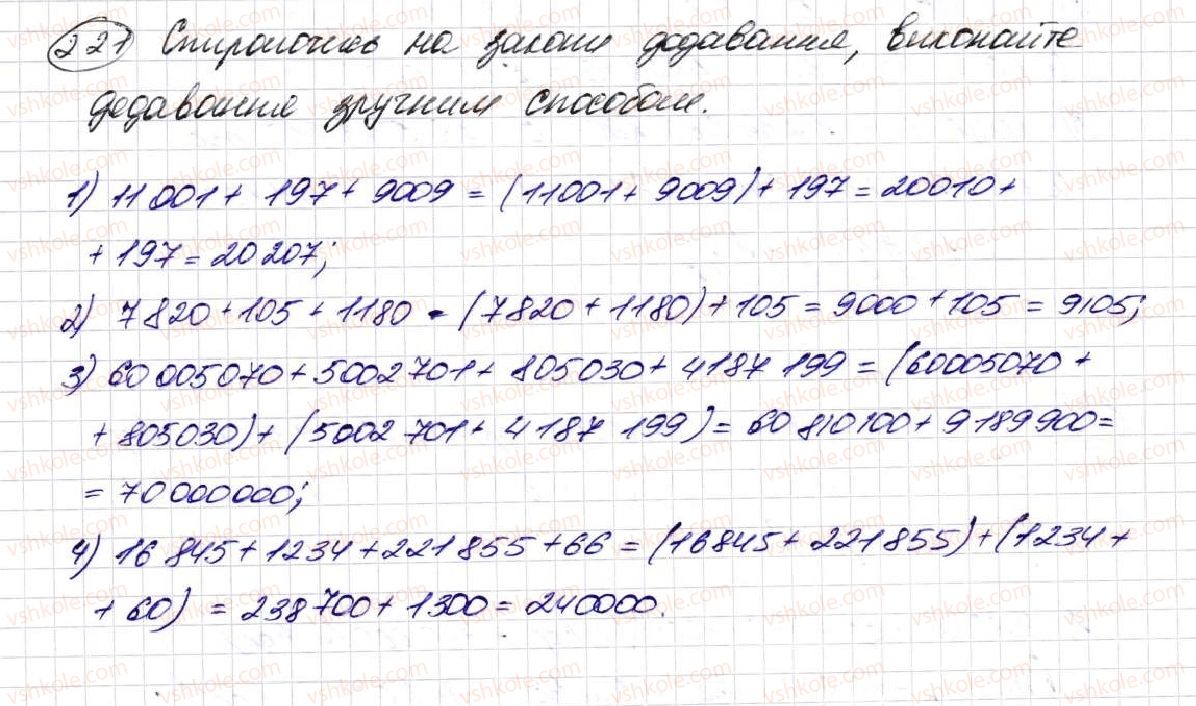 221 Спираючись на закони додавання, виконайте
додавання зручним способом.
1) 11 001 + 197 + 9009 = (11001 + 9009) + 197 = 20010 +
+ 197 = 20 207;
2) 7 820 + 105 + 1180 = (7820 + 1180) + 105 = 9000 + 105 = 9105;
3) 60 005070 + 5002 701 + 805030 + 4187 199 = (60005070 +
+ 805030) + (5002 701 + 4187 199) = 60 810 100 + 9 189 900 =
= 70 000 000;
4) 16 845 + 1234 + 221 855 + 66 = (16845 + 221855) + (1234 +
+ 60) = 238 700 + 1300 = 240000.
vshkole.com